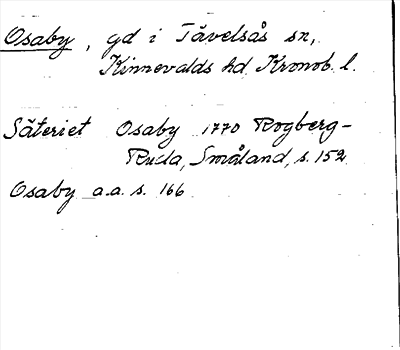 Osaby, gd i Tävelsås sn,
Kinnevalds hd Kronob. l.
Säteriet Osaby 1770 Rogberg-
Ruda, Småland, s. 152
Osaby a.a. s. 166